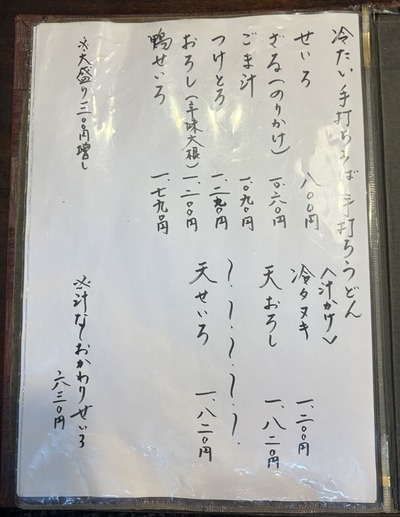 冷たい手打ちそば 手打ちうどん
せいろ 八〇〇円
ざる(のりかけ) 一、〇六〇円
ごま汁 一、〇九〇円
つけとろ 一、二九〇円
おろし(辛味大根) 一、二〇〇円
鴨せいろ 一、七九〇円
※大盛り三〇〇円増し
〈汁かけ〉
冷タヌキ 一、二〇〇円
天おろし 一、八二〇円
天せいろ 一、八二〇円
※汁なしおかわりせいろ
六三〇円